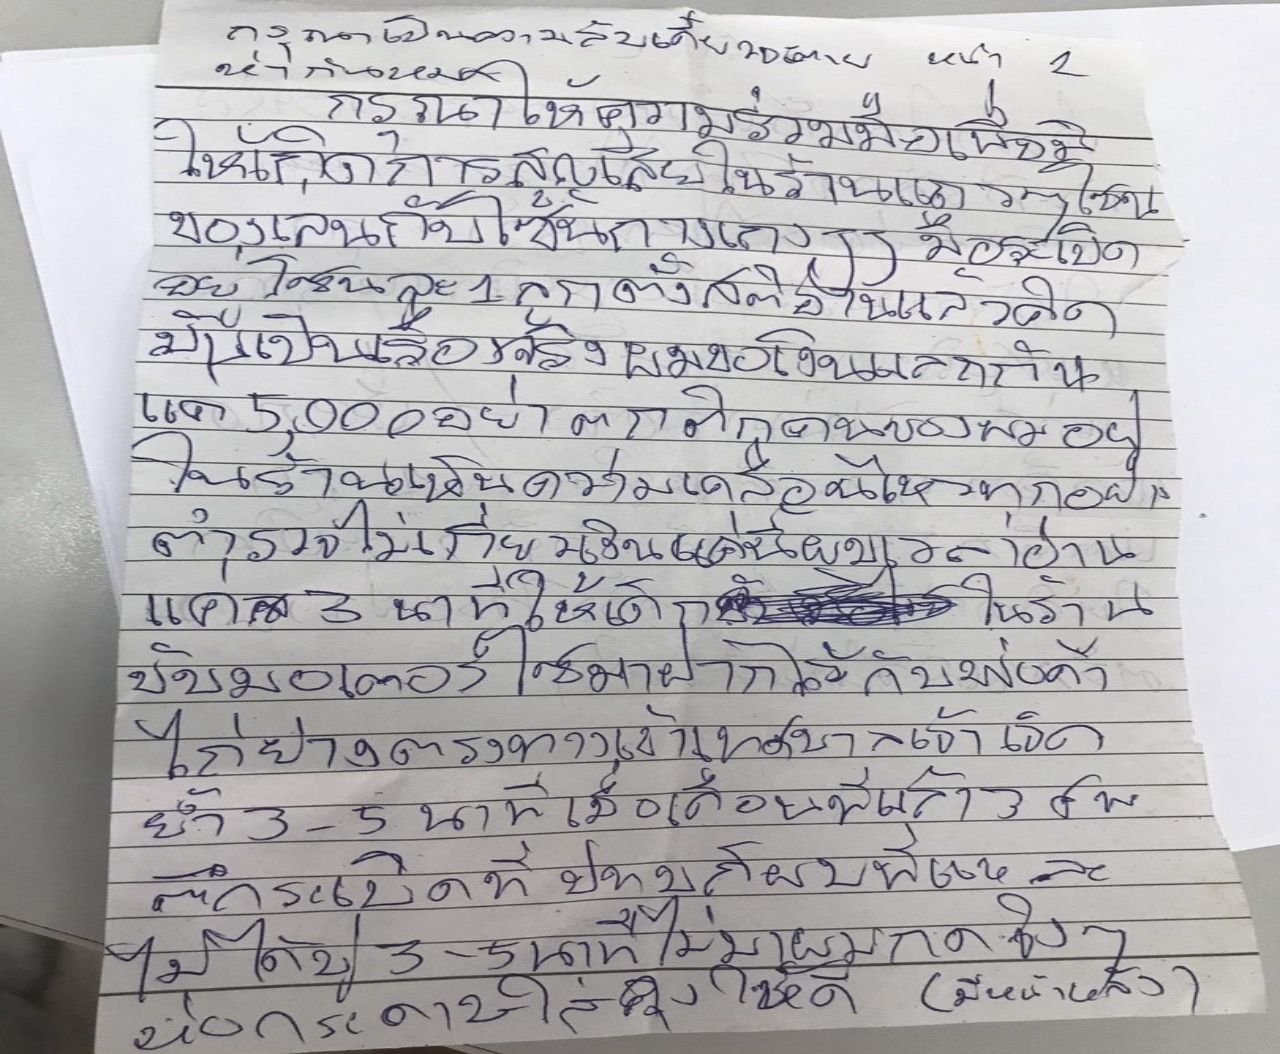 กรุณาเป็นความลับเดี๋ยวจะตาย หน้า 1
กรุณาให้ความร่วมมือเพื่อมิ
ให้เกิดการสูญเสียในร้านและ โซน
ของเล่นกับโซนกางเกง มีระเบิด
อยู่โซนละ 1 ลูก ตั้งสติอ่านแล้วคิด
มันเป็นเรื่องจริง ผมขอเงินแลกกัน
แค่ 5,000 อย่าตกใจ คนของผมอยู่
ในร้านเห็นความเคลื่อนไหวทุกอย่าง
ตำรวจไม่เกี่ยว เวลาอ่าน
แค่ 3 นาที ให้เด็ก ในร้าน
ขับมอเตอร์ไซมาฝากไว้กับพ่อค้า
ไก่ย่างตรงทางเข้าเทศบาลเจ้าเจ็ด
ย้ำ 3 - 5 นาที เมื่อเดือนที่แล้ว 3 ศพ
ระเบิดที่ ก็ผม
ไม่ได้ขู่ 3 - 5 นาที ไม่มาผมกดจริงๆ
ห่อกระดาษใส่ถุงให้ดี (มีหน้าหลัง)